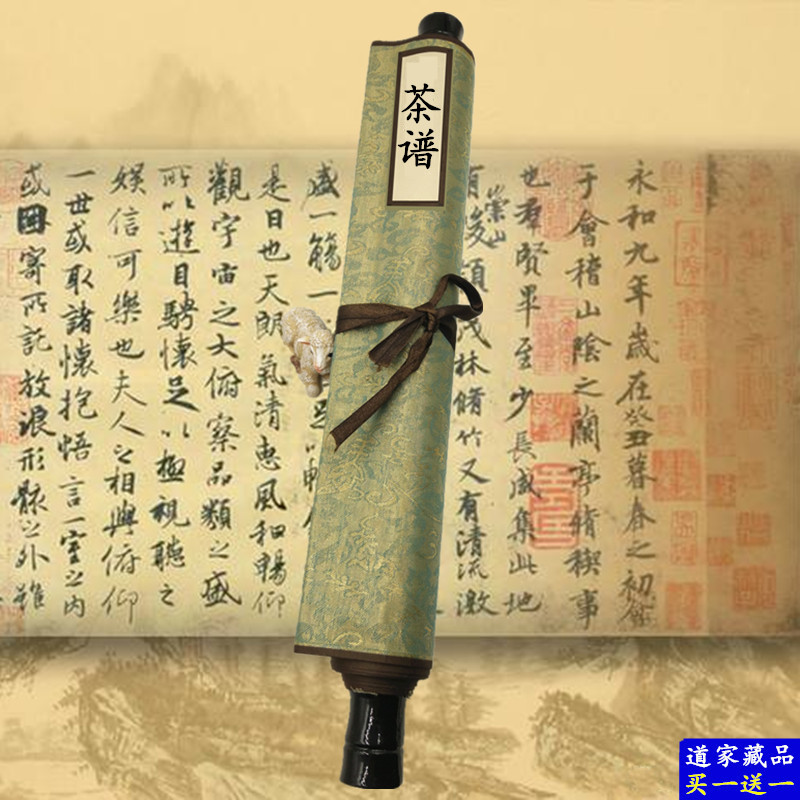 茶谱
永和九年歲在癸丑暮春之初會
于會稽山陰之蘭亭脩稧事
也羣賢畢至少長咸集此地
崇山
有峻領茂林脩竹又有清流激
盛一觴一
足以
是日也天朗氣清惠風和暢仰
觀宇宙之大俯察品類之盛
所以遊目騁懷足以極視聽之
娛信可樂也夫人之相與俯仰
一世或取諸懷抱悟言一室之內
或因寄所託放浪形骸之外雖
道家藏品
买一送一